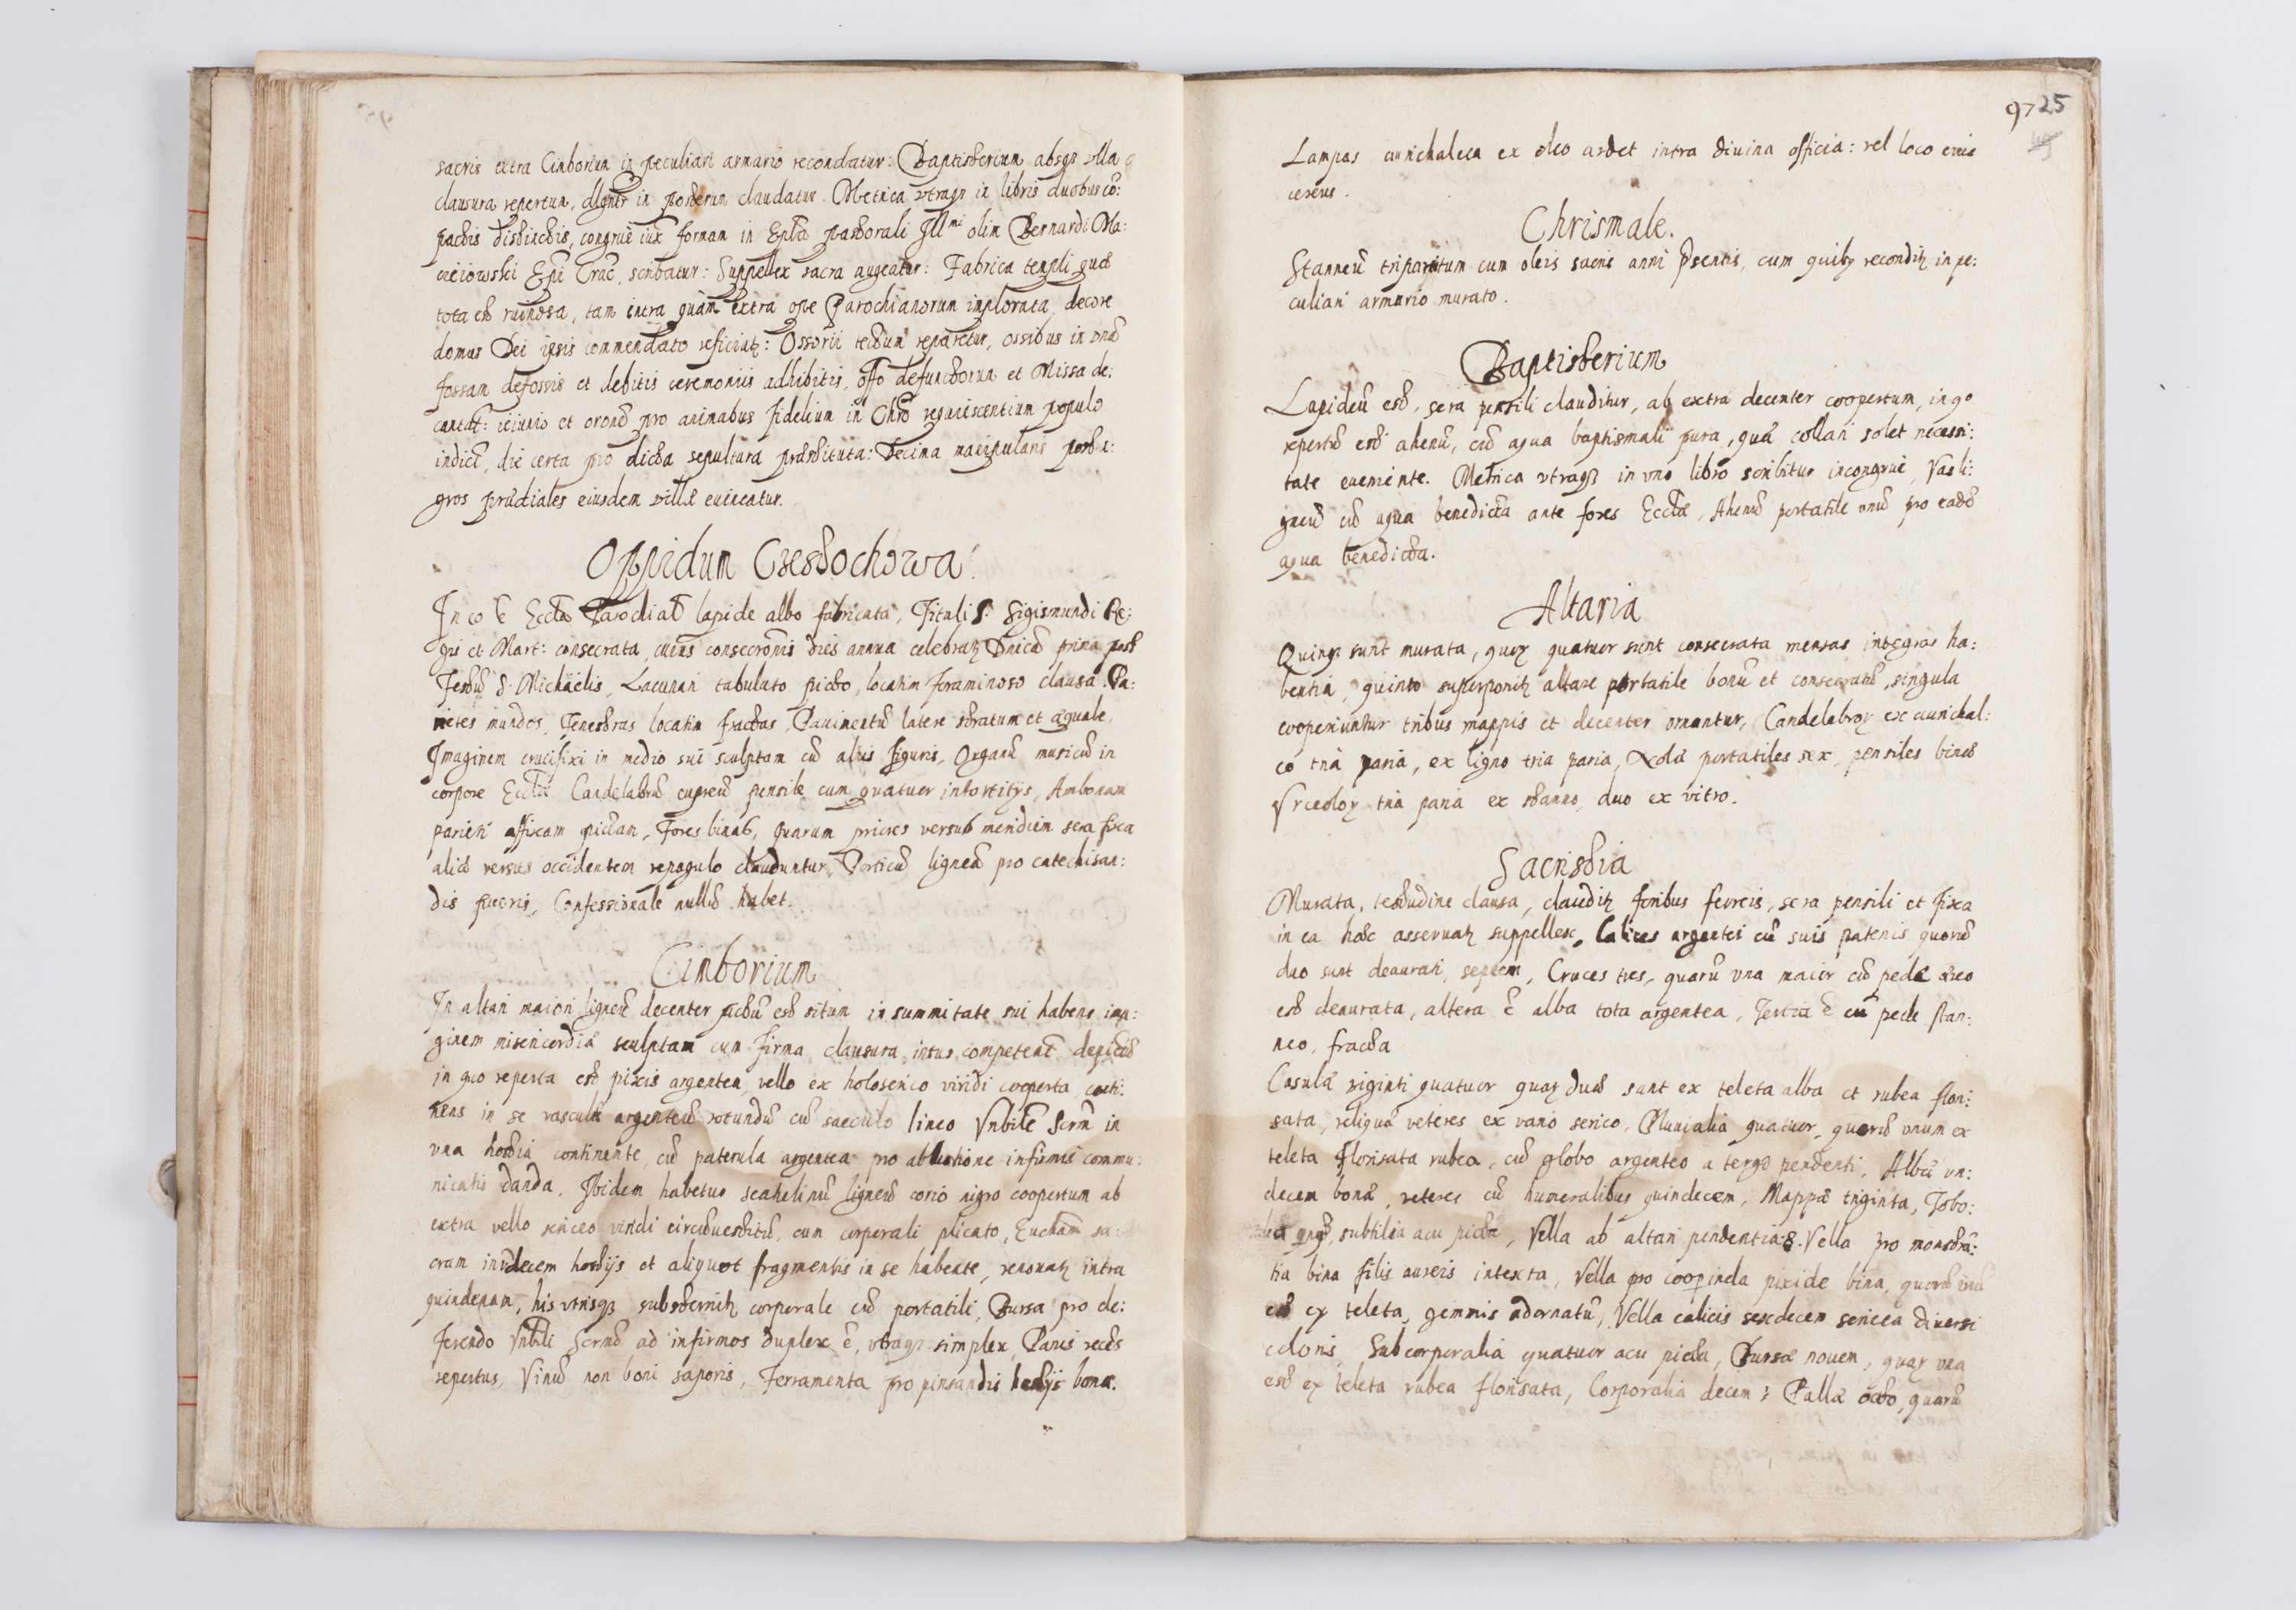 sacris extra Cimborium in peculiari armario recondatur: Baptisterium absqз vlla
clausura repertum, dilgnter in posterum claudatur. Metrica vtraqз in libris duobus cō:
pactis distinctis, congrue iux formam in Epla pastorali Illmi olim Bernardi Ma:
cieiowski Epi Crac. scribatur: Suppellex sacra augeatur: Fabrica templi quæ
tota est ruinosa, tam intra quàm extra ope Parochianorum implorata, decore
domus Dei ipsis commendato reficiatz: Ossorii tectum reparetur, ossibus in unā
fossam defossis et debitis ceremoniis adhibitis, offo defunctorum et Missa de:
cantat: ieiunio et oronē pro animabus fidelium in Chro requiescentium populo
indict, die certa pro dicta sepultura præstituta: Decima manipularis post a:
gros prædiales eiusdem villæ euincatur.
Oppidum Czestochowa.
In eo ē Eccla Parochial lapide albo fabricata, Tituli S. Sigismundi Re:
gis et Mart: consecrata, cuius consecronis dies annua celebratz Dnica prima post
Festū S. Michäelis, Lacunari tabulato picto, locatim foraminoso clausa. Pa:
rietes mundos, Fenestras locatim fractas, Pauimentū latere stratum et æquale
Imaginem crucifixi in medio sui sculptam cū aliis figuris, Organū musicū in
corpore Ecclæ Candelabrū cupreū pensile cum quatuor intortitijs, Ambonam
parieti affixam pictam, Fores binas, quarum priores versus meridiem sera fixa
aliæ versus occidentem repagulo clauduntur, Porticū ligneā pro catechisan:
dis pueris, Confessionale nullū habet.
Cimborium
In altari maiori ligneū decenter pictū est situm in summitate sui habens ima:
ginem misericordiæ sculptam cum firma clausura, intus competent depictū
in quo reperta est pixis argentea vello ex holoserico viridi cooperta conti:
nens in se vasculū argenteū rotundū cū sacculo lineo Vnbile Scrm in
vna hostia continente, cū paterula argentea pro ablutione infirmis commu:
nicatis danda. Ibidem habetur scatulinū ligneū corio nigro coopertum ab
extra vello sericeo viridi circūuestitū, cum corporali plicato, Eucham sa:
cram in vndecem hostijs et aliquot fragmentis in se habente, renouatz intra
quindenam, his vtrisqз substernitz corporale cū portatili, Bursa pro de:
ferendo Vnbili Scrmō ad infirmos duplex ē, vtraqз simplex, Panis recēs
repertus, Vinū non boni saporis, Ferramenta pro pinsandis hostijs bona.
97 25
Lampas aurichalcea ex oleo ardet intra diuina officia: vel loco eius
cereus.
Chrismale.
Stanneū tripartitum cum oleis sacris anni Psentis, cum quibз reconditz in pe:
culiari armario murato.
Baptisterium
Lapideū est, sera pensili clauditur, ab extra decenter coopertum, in qo
repertū est ahenū, cū aqua baptismali pura, quæ collari solet necessi:
tate eueniente. Metrica vtraqз in vno libro scribitur incongrue, Vas li:
gneū cū aqua benedicta ante fores Ecclæ, Ahenū portatile unū pro eadē
aqua benedicta.
Altaria
Quinqз sunt murata, quoz quatuor sunt consecrata mensas integras ha:
bentia, quinto superponitz altare portatile bonū et consecratū, singula
cooperiuntur tribus mappis et decenter ornantur, Candelabroz ex aurichal:
co tria paria, ex ligno tria paria, Nolæ portatiles sex, pensiles binæ
Vrceoloz tria paria ex stanno, duo ex vitro.
Sacristia
Murata, testudine clausa, clauditz foribus ferreis, sera pensili et fixa
in ea hæc asseruatz suppellex. Calices argentei cū suis patenis, quorū
duo sunt deaurati, septem, Cruces tres, quarū vna maior cū pede æreo
est deaurata, altera ē alba tota argentea, Tertia ē cū pede stan:
neo, fracta
Casulæ viginti quatuor quaz duæ sunt ex teleta alba et rubea flori:
sata, reliquæ veteres ex vario serico, Pluuialia quatuor, quorū vnum ex
teleta florisata rubea, cū globo argenteo a tergo pendenti, Albæ un:
decem bonæ, veteres cū humeralibus quindecem, Mappæ triginta, Tobo:
subtilia acu picta, Vella ab altari pendentia 8. Vella pro monstrā:
tia bina filis aureis intexta, Vella pro cooperienda pixide bina, quorū unū
est ex teleta, gemmis adornatū, Vella calicis sexdecem sericea diuersi
coloris, Subcorporalia quatuor acu picta, Bursæ nouem, quaz vna
est ex teleta rubea florisata, Corporalia decem; Pallæ octo, quarū